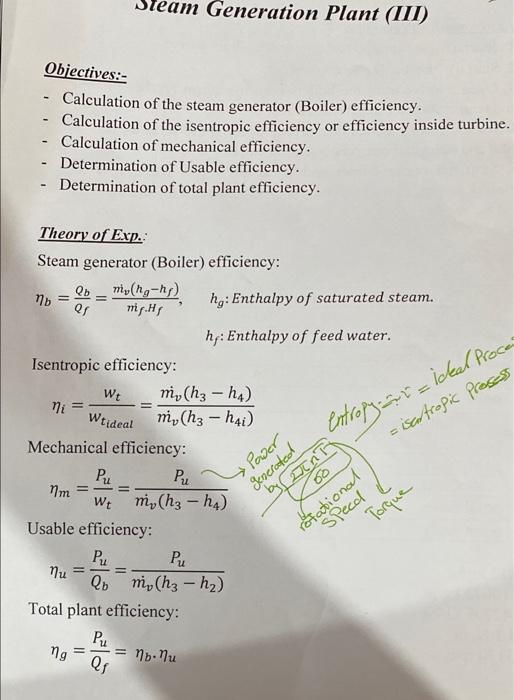 Steam Generation Plant (III)
Objectives:-
- Calculation of the steam generator (Boiler) efficiency.
- Calculation of the isentropic efficiency or efficiency inside turbine.
- Calculation of mechanical efficiency.
- Determination of Usable efficiency.
- Determination of total plant efficiency.
Theory of Exp.:
Steam generator (Boiler) efficiency:
η_b = Q_b / Q_f = ṁ_v(h_g−h_f) / ṁ_f.H_f, h_g: Enthalpy of saturated steam.
h_f: Enthalpy of feed water.
Isentropic efficiency:
η_i = W_t / W_tideal = ṁ_v(h_3 − h_4) / ṁ_v(h_3 − h_4i)
= ideal Proce
= isentropic Process
Entropy
Mechanical efficiency:
η_m = P_u / W_t = P_u / ṁ_v(h_3 − h_4)
Power
generated
by
2πnT / 60
rotational
Speed
Torque
Usable efficiency:
η_u = P_u / Q_b = P_u / ṁ_v(h_3 − h_2)
Total plant efficiency:
η_g = P_u / Q_f = η_b.η_u